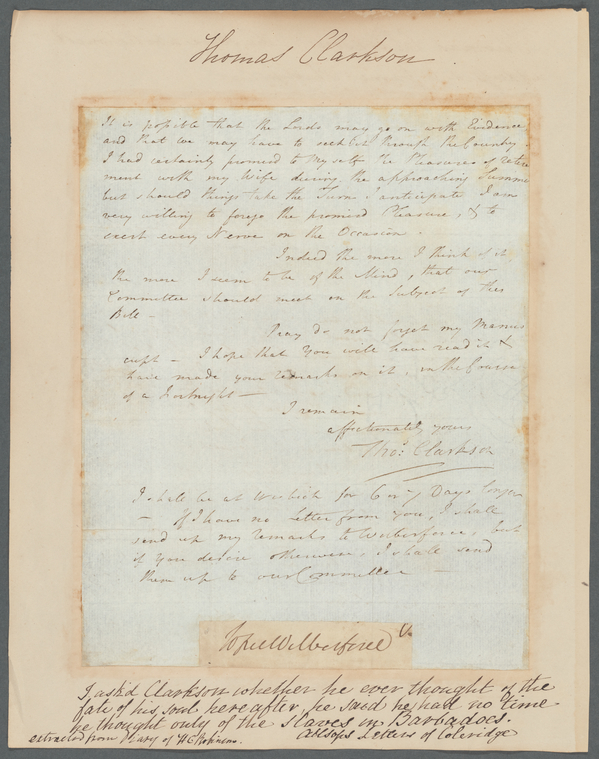 Thomas Clarkson
It is possible that the Lords may go on with Evidence
and that we may have to seek it through the Country.
I had certainly promised to myself the Pleasures of retire
ment with my Wife during the approaching Summer
but should things take the Turn I anticipate I am
very willing to forego the promised Pleasure, & to
exert every Nerve on the Occasion.
Indeed the more I think of it,
the more I seem to be of the Mind, that our
Committee should meet on the Subject of this
Bill —
Pray do not forget my Manus
cript — I hope that You will have read it &
have made your Remarks on it, in the Course
of a Fortnight —
I remain
affectionately yours
Thos. Clarkson
I shall be at Wisbich for 6 or 7 Days longer
— If I have no Letter from you, I shall
send up my Remarks to Wilberforce, but
if You desire otherwise, I shall send
them up to our Committee —
Wilberforce
I ask'd Clarkson whether he ever thought of the
fate of his soul hereafter, he said he had no time
he thought only of the slaves in Barbadoes.
extracted from Diary of H C Robinson. Allsops Letters of Coleridge